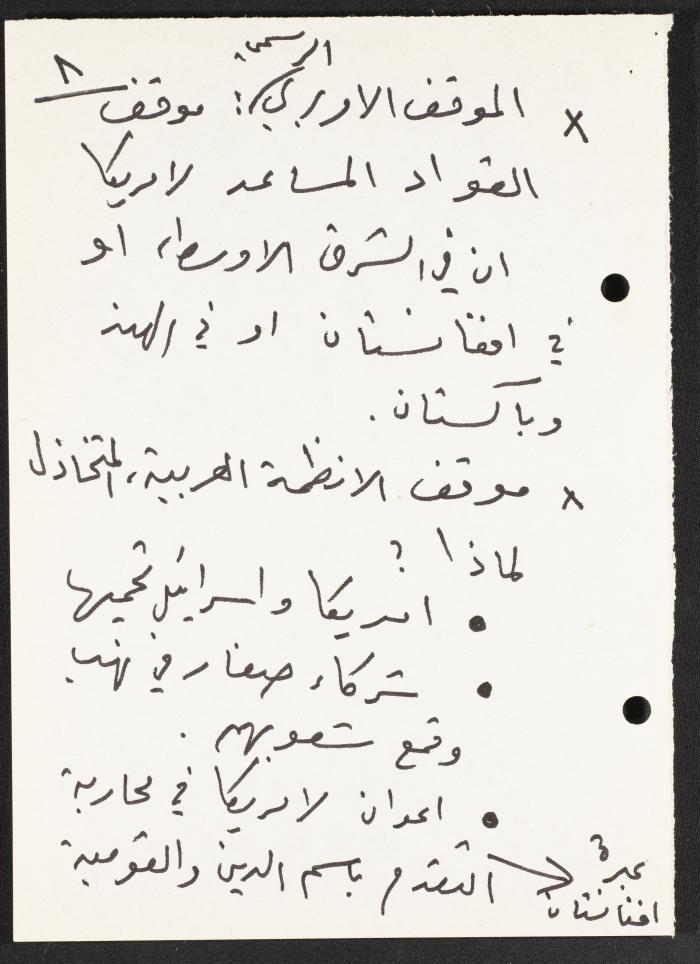 ٨
الرسمي
× الموقف الاوربي: موقف
القواد المساعد لامريكا
ان في الشرق الاوسط، او
في افغانستان او في الهند
وباكستان.
× موقف الانظمة العربية، المتخاذل
لماذا؟
• امريكا واسرائيل تحميها
• شركاء صغار في نهب
وقمع شعوبهم.
• اعوان لامريكا في محاربة
التقدم باسم الدين والقومية
عبرة
افغانستان